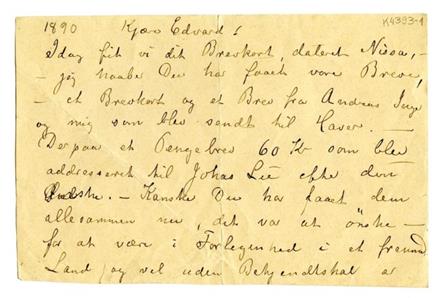 1890 Kjære Edvard! K4393-1
Idag fik vi dit Brevkort, dateret Nissa, –
– jeg haaber Du har faaet vore Breve,
– et Brevkort og et Brev fra Andreas Inge
og mig som blev sendt til Haver. —
Derpaa et Pengebrev 60 Kr som blev
addresseret til Johas Lie efter den
– Kanske Du har faaet dem
allesammen nu, det var at ønske –
for at være i Forlegenhed i et fremmed
Land og vel uden Bekjendtskab er